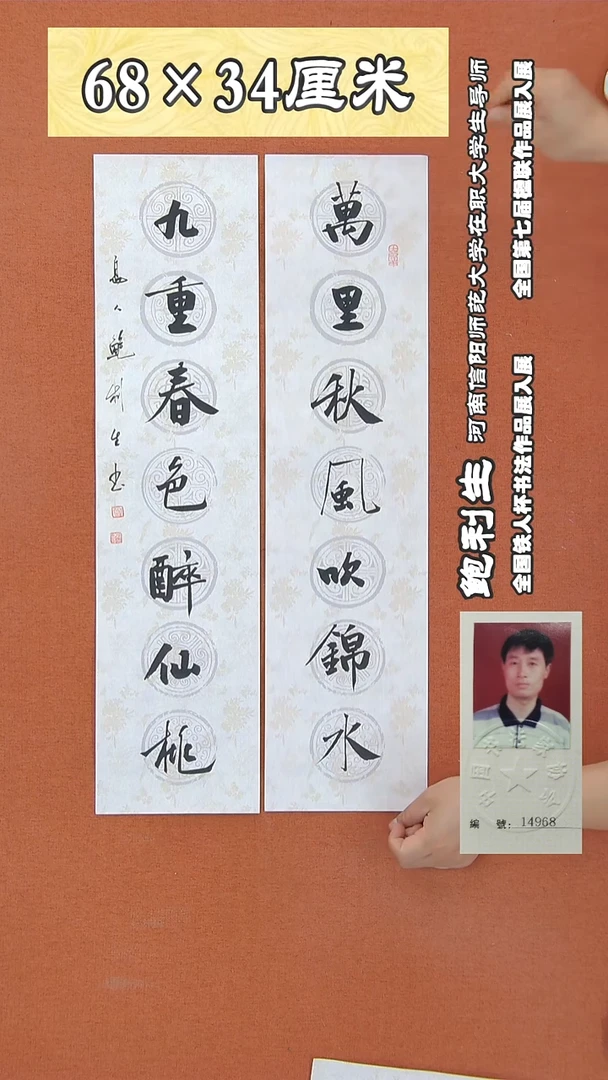 68×34厘米
萬里秋風吹錦水
九重春色醉仙桃
鲍利生书
鲍利生 河南信阳师范大学在职大学生导师
全国铁人杯书法作品展入展 全国第七届楹联作品展入展
編 號: 14968